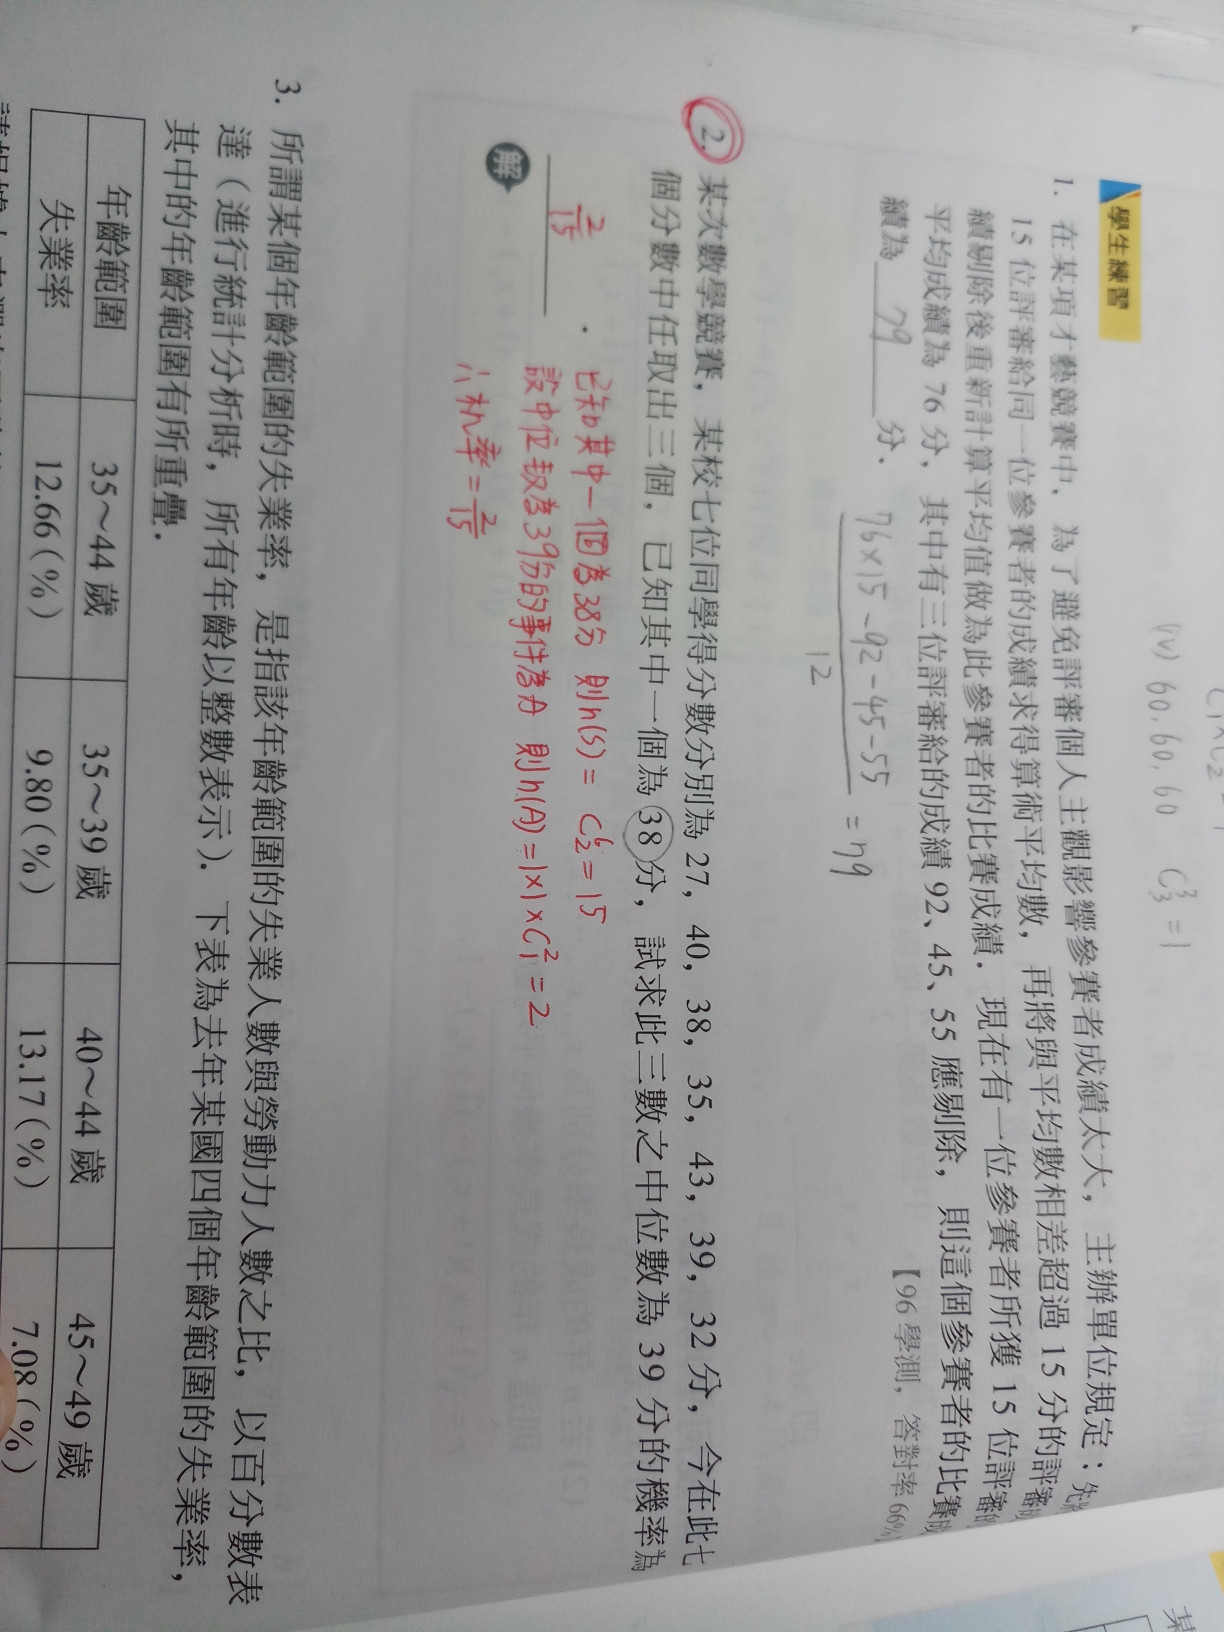 (iv) 60, 60, 60 C³₃ = 1
學生練習
1. 在某項才藝競賽中，為了避免評審個人主觀影響參賽者成績太大，主辦單位規定：先將
15 位評審給同一位參賽者的成績求得算術平均數，再將與平均數相差超過 15 分的評審
績剔除後重新計算平均值做為此參賽者的比賽成績．現在有一位參賽者所獲 15 位評審的
平均成績為 76 分，其中有三位評審給的成績 92、45、55 應剔除，則這個參賽者的比賽
績為 79 分．
【96 學測，答對率 66%
76×15-92-45-55
12
= 79
2. 某次數學競賽，某校七位同學得分數分別為 27，40，38，35，43，39，32 分，今在此七
個分數中任取出三個，已知其中一個為 38 分，試求此三數之中位數為 39 分的機率為
2/15 ．
解
已知其中一個為38分 則n(S) = C⁶₂ = 15
設中位數為39分的事件為A 則n(A) = 1×1×C²₁ = 2
∴機率 = 2/15
3. 所謂某個年齡範圍的失業率，是指該年齡範圍的失業人數與勞動力人數之比，以百分數表
達（進行統計分析時，所有年齡以整數表示）．下表為去年某國四個年齡範圍的失業率，
其中的年齡範圍有所重疊．
年齡範圍 35～44 歲 35～39 歲 40～44 歲 45～49 歲
失業率 12.66（%） 9.80（%） 13.17（%） 7.08（%）